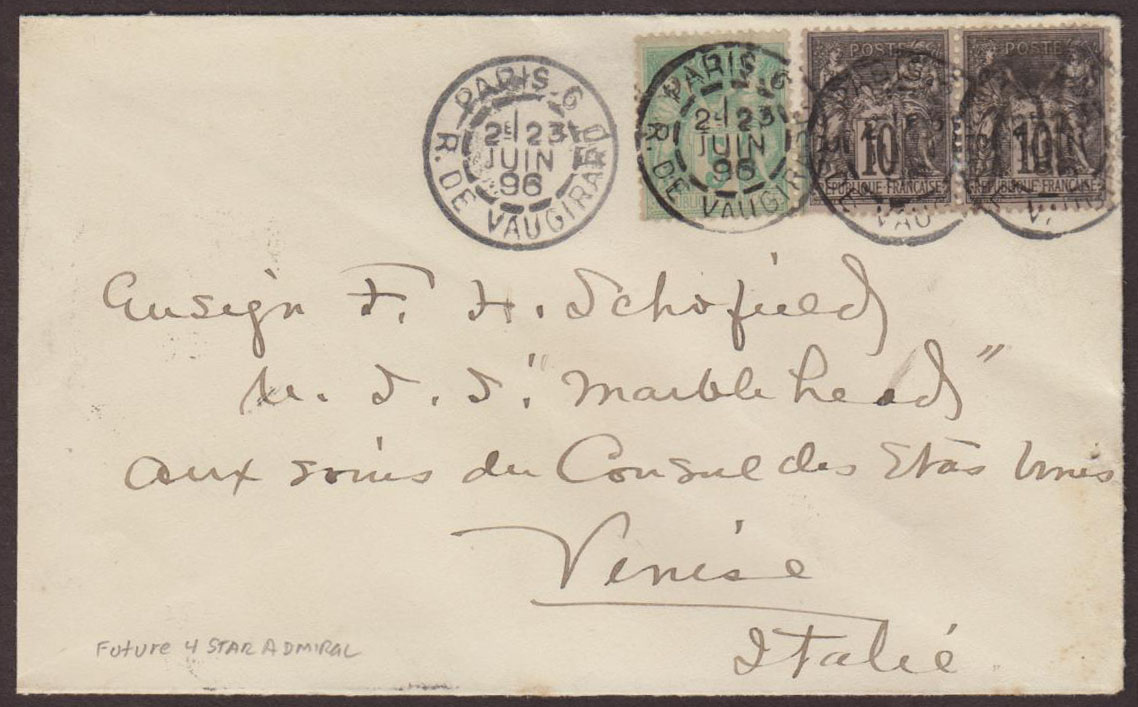 PARIS-6
2E 23
JUIN
96
R. DE VAUGIRARD
PARIS-6
2E 23
JUIN
96
R. DE VAUGIRARD
5
POSTE
10
RÉPUBLIQUE FRANÇAISE
POSTE
10
REPUBLIQUE FRANÇAISE
Ensign F. H. Schofield
U. S. S. "Marblehead"
aux soins du Consul des Etas Unis
Venise
Italié
Future 4 STAR ADMIRAL